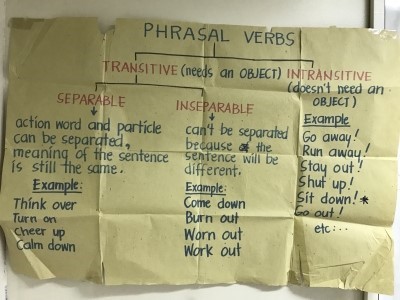 PHRASAL VERBS
TRANSITIVE (needs an OBJECT)
SEPARABLE
action word and particle
can be separated,
meaning of the sentence
is still the same.
Example:
Think over
Turn on
Cheer up
Calm down
INSEPARABLE
can't be separated
because the
sentence will be
different.
Example:
Come down
Burn out
Worn out
Work out
INTRANSITIVE
(doesn't need an
OBJECT)
Example
Go away!
Run away!
Stay out!
Shut up!
Sit down!*
Go out!
etc...